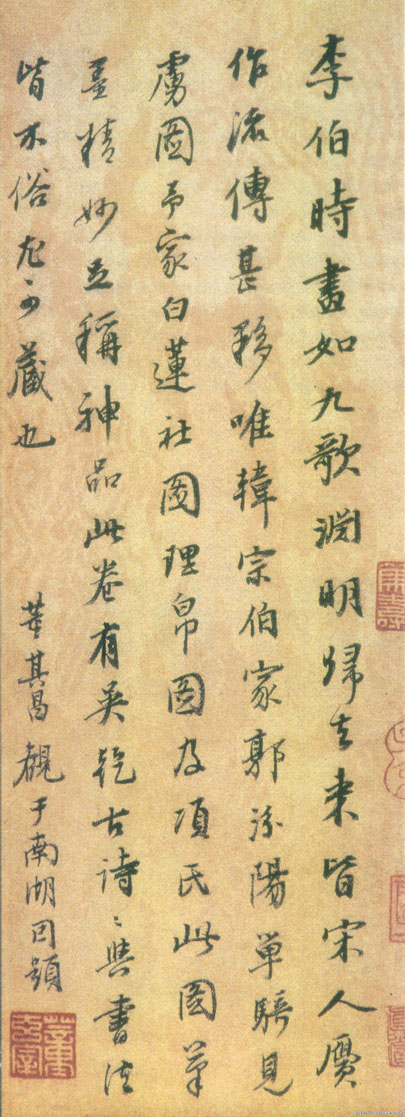 李伯時畫如九歌渊明歸去來皆宋人贋
作流傳甚夥唯韓宗伯家郭汾陽單騎見
虜圖予家白蓮社圖理帛圖及項氏此圖筆
墨精妙並稱神品此卷有吳古詩〻與書法
皆不俗尤可藏也
董其昌觀于南湖因題